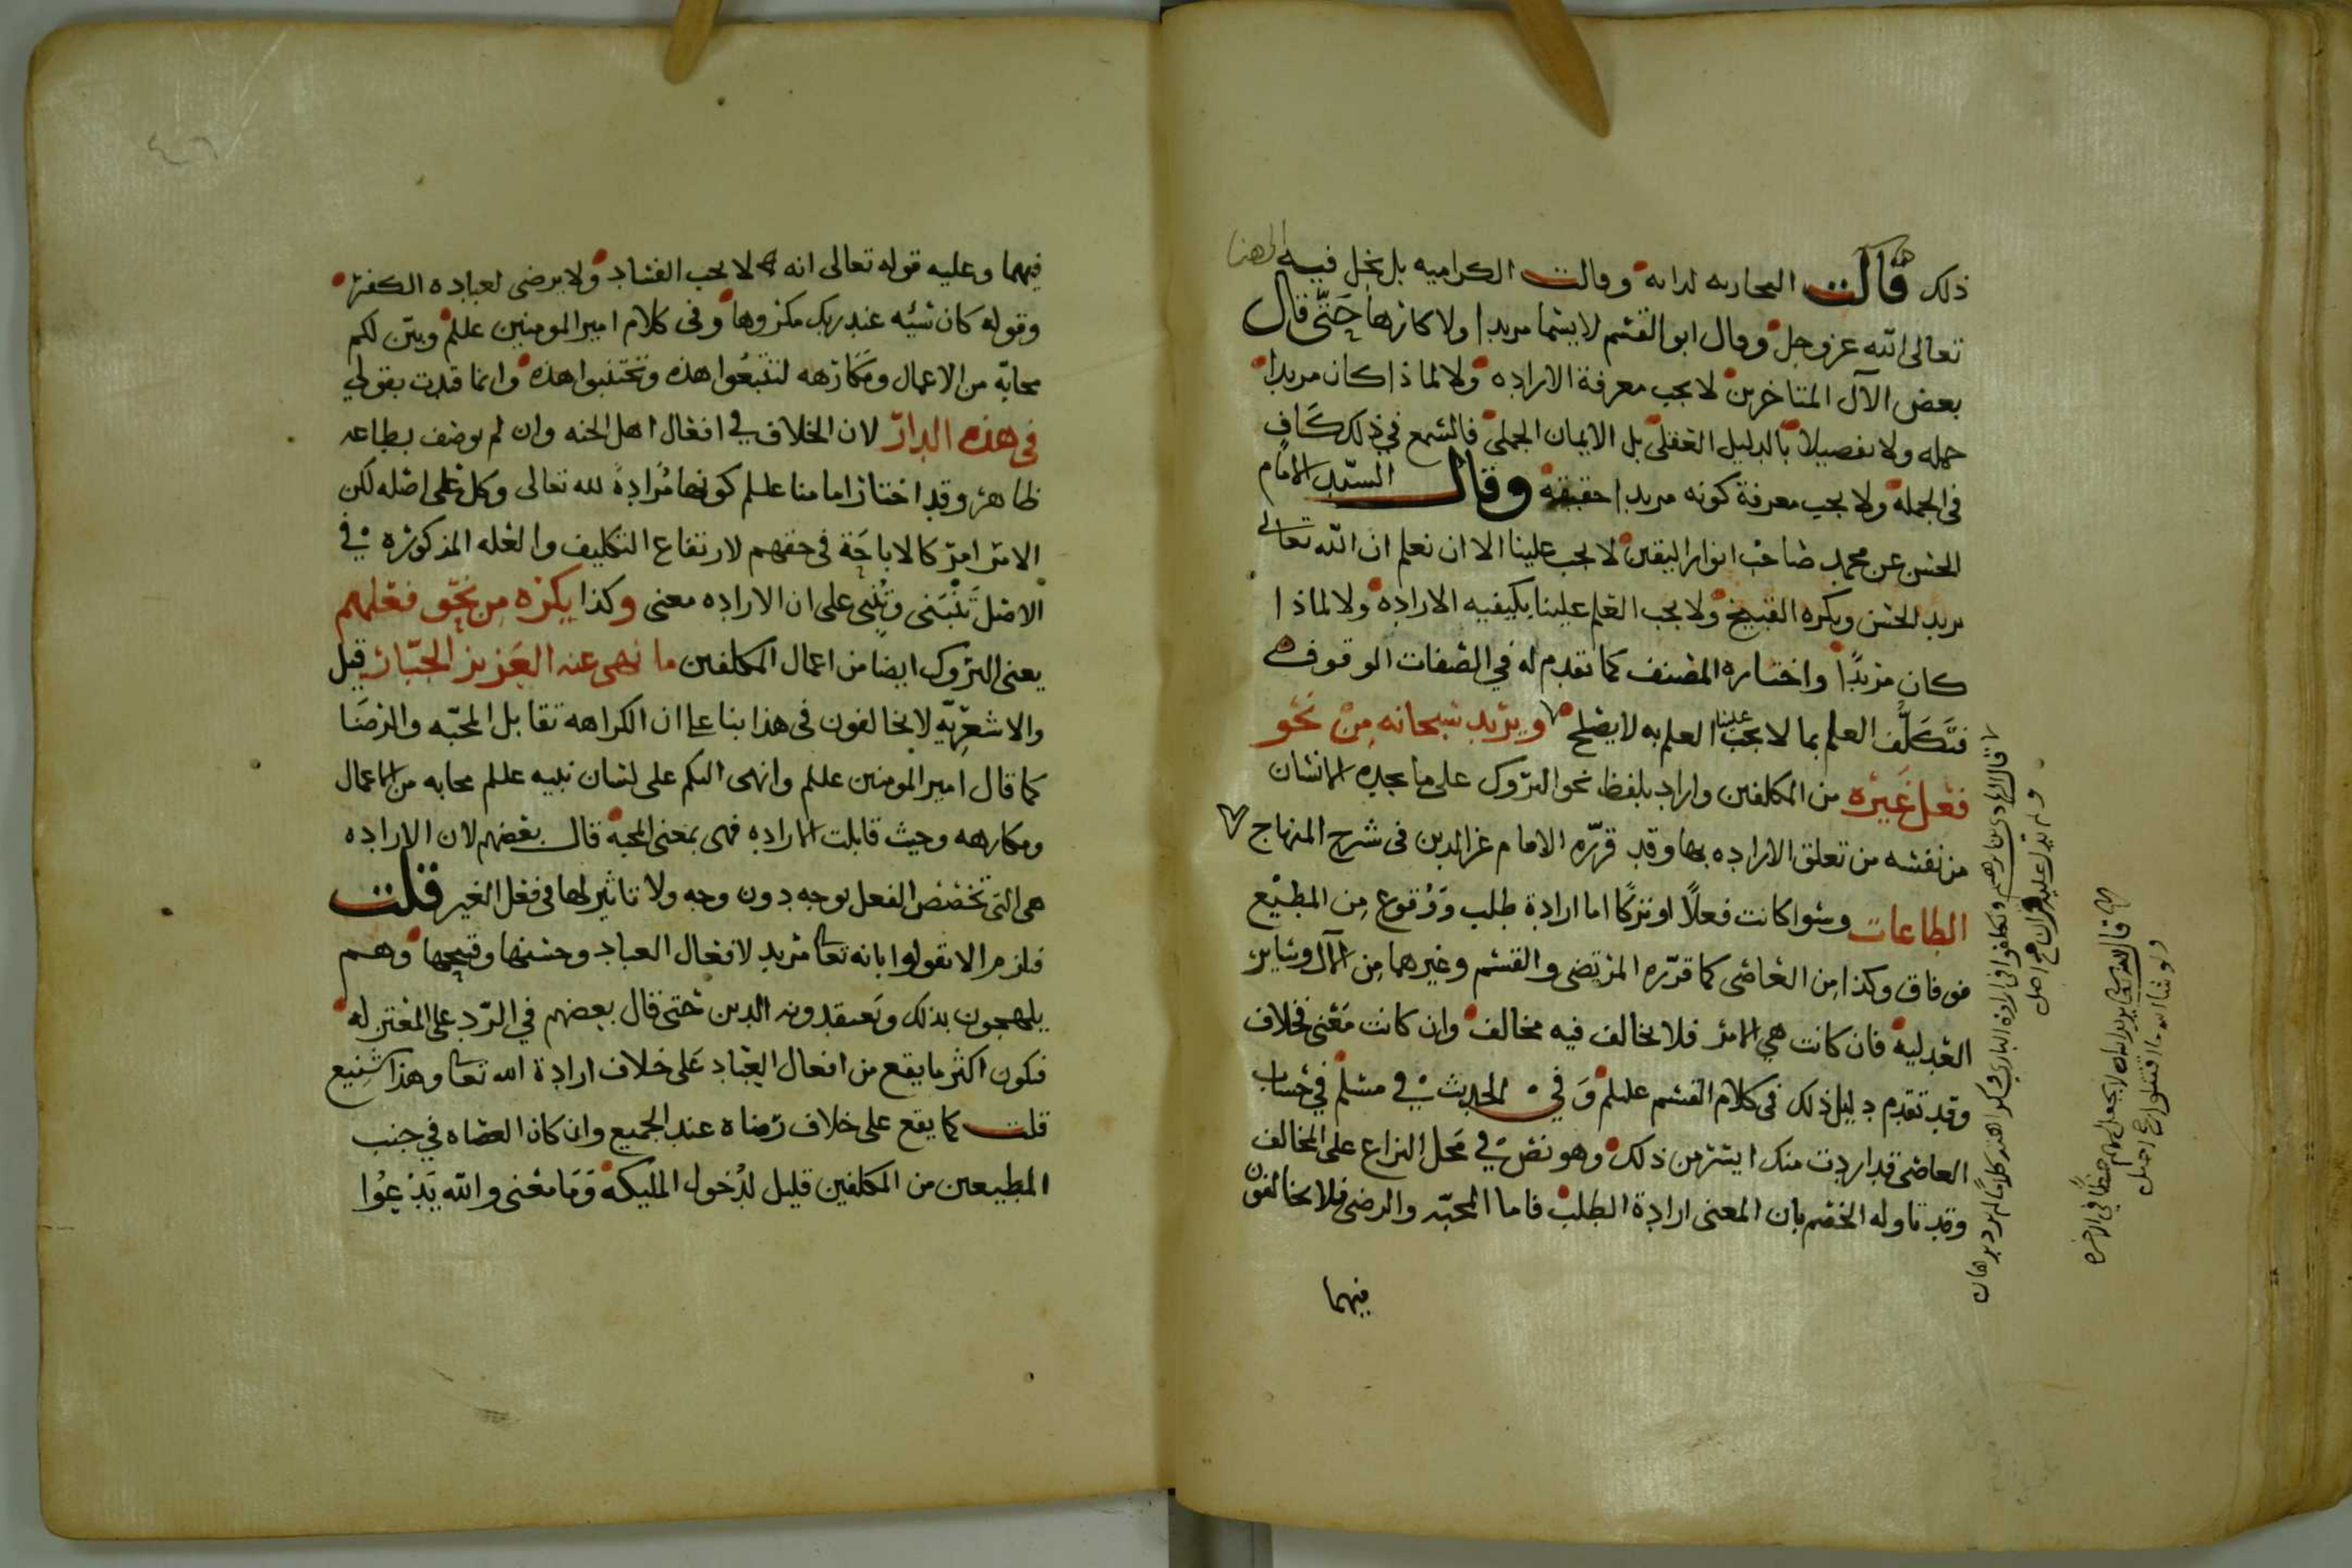 ذلك قالت النجاريه لذاته وقالت الكراميه بل يخل فيه
تعالى الله عز وجل وقال ابو القسم لايسما مريدا ولا كارها حتى قال
بعض الآل المتاخرين لا يجب معرفة الاراده ولا لماذا كان مريدا
جمله ولا تفصيلا بالدليل العقلي بل الايمان الجملي فالسمع في ذلك كاف
في الجمله ولا يجب معرفة كونه مريدا حقيقه وقال السيد الامام
الحسن عن محمد صاحب انوار اليقين لا يجب علينا الا ان نعلم ان الله تعالى
يريد الحسن ويكره القبيح ولا يجب العلم علينا بكيفيه الاراده ولا لماذا
كان مريدا واختاره المصنف كما تقدم له في الصفات الوقوف
فتكلف العلم بما لا يجب علينا العلم به لا يصلح ويريد سبحانه من نحو
فعل غيره من المكلفين واراد بلفظ نحو التروك على ما يجده الانسان
من نفسه من تعلق الاراده بها وقد قرره الامام عز الدين في شرح المنهاج
الطاعات وسوا كانت فعلا او تركا اما ارادة طلب ووقوع من المطيع
فوفاق وكذا من العاصي كما قرره المرتضى والقسم وغيرهما من الآل وساير
العدليه فان كانت هي الامر فلا يخالف فيه مخالف وان كانت معنى فخلاف
وقد تقدم دليل ذلك في كلام القسم عليلم وفي الحديث في مسلم في حساب
العاصي قد اردت منك ايسر من ذلك وهو نص في محل النزاع على المخالف
وقد تاوله الخصم بان المعنى ارادة الطلب فاما المحبه والرضى فلا يخالفون
فيهما
فيهما وعليه قوله تعالى انه لا يحب الفساد ولا يرضى لعباده الكفر
وقوله كان سيئه عند ربك مكروها وفي كلام امير المومنين عليلم وبين لكم
محابه من الاعمال ومكارهه لتتبعوا هذه وتجتنبوا هذه وانما قيدت بقولي
في هذه الدار لان الخلاف في افعال اهل الجنه وان لم يوصف بطاعه
ظاهر وقد اختار امامنا عليلم كونها مرادة لله تعالى وكل على اصله لكن
الامر امر كالاباحة في حقهم لارتفاع التكليف والعله المذكوره في
الاصل تنبني وتبنى على ان الاراده معنى وكذا يكره من نحو فعلهم
يعني التروك ايضا من اعمال المكلفين ما نهى عنه العزيز الجبار قيل
والاشعريه لا يخالفون في هذا بنا على ان الكراهه تقابل المحبه والرضا
كما قال امير المومنين عليلم وانهى اليكم على لسان نبيه عليلم محابه من الاعمال
ومكارهه وحيث قابلت الاراده فهي بمعنى المحبه قال بعضهم لان الاراده
هي التي تخصص الفعل بوجه دون وجه ولا تاثير لها في فعل الغير قلت
فلزم الا تقولوا بانه تعالى مريد لافعال العباد وحسنها وقبيحها وهم
يلهجون بذلك ويعتقدونه الدين حتى قال بعضهم في الرد على المعتزله
فكون اكثر ما يقع من افعال العباد على خلاف ارادة الله تعالى وهذا شنيع
قلت كما يقع على خلاف رضاه عند الجميع وان كان العصاه في جنب
المطيعين من المكلفين قليل لدخول المليكه وما معنى والله يدعوا